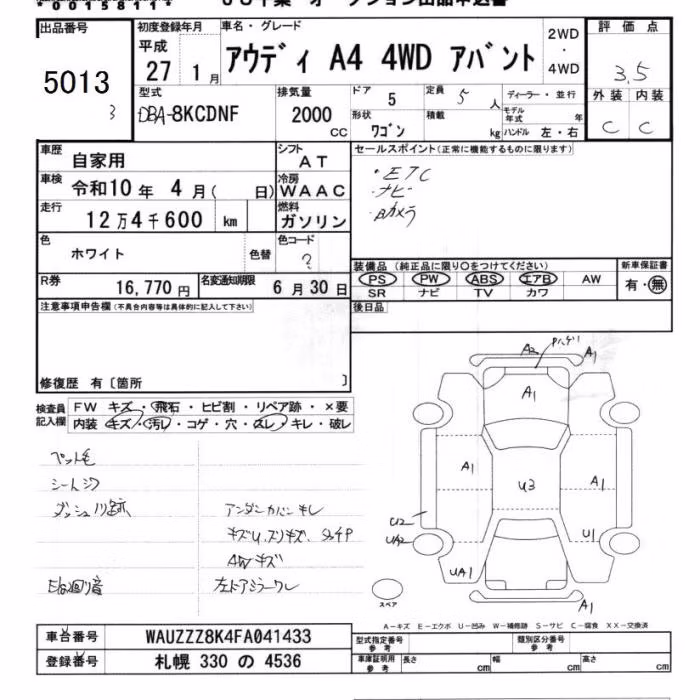 *00158111*
出品番号
5013
3
初度登録年月
平成
27 1月
車名・グレード
アウディ A4 4WD アバント
2WD
・
4WD
評価点
3.5
外装 内装
C C
型式
DBA-8KCDNF
排気量
2000
CC
ドア 5
定員 5 人
形状 ワゴン
積載 kg
ディーラー・並行
モデル年式 年
ハンドル 左・右
車歴 自家用
シフト AT
車検 令和10年 4月( 日)
冷房 WAAC
走行 12万4千600 km
燃料 ガソリン
色 ホワイト
色替
色コード ?
R券 16,770円
名変通知期限 6月30日
セールスポイント(正常に機能するものに限ります)
・ETC
・ナビ
・Bカメラ
装備品(純正品に限り○をつけてください)
PS PW ABS エアB AW
SR ナビ TV カワ
新車保証書
有・無
後日品
注意事項申告欄(不具合内容等は具体的に記入して下さい)
修復歴 有〔箇所 〕
検査員記入欄
FW キズ・飛石・ヒビ割・リペア跡・×要
内装 キズ・汚レ・コゲ・穴・スレ・キレ・破レ
ペット毛
シートシワ
アンダーカバーキレ
AWキズ
左ドアミラーワレ
A2
A1
A1
A1
A1
U3
U2
UA2
U1
UA1
A1
スペア
A-キズ E-エクボ U-凹み W-補修跡 S-サビ C-腐食 XX-交換済
車台番号 WAUZZZ8K4FA041433
登録番号 札幌 330 の 4536
型式指定番号 参考
類別区分番号 参考
車庫証明用 参考
長さ cm
幅 cm
高さ cm